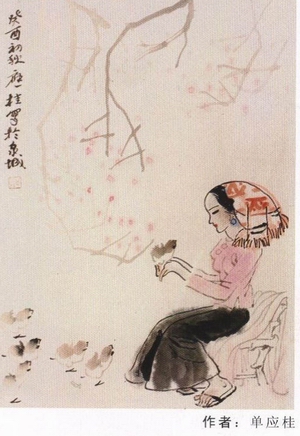 癸酉初秋应桂写於泉城
作者：单应桂